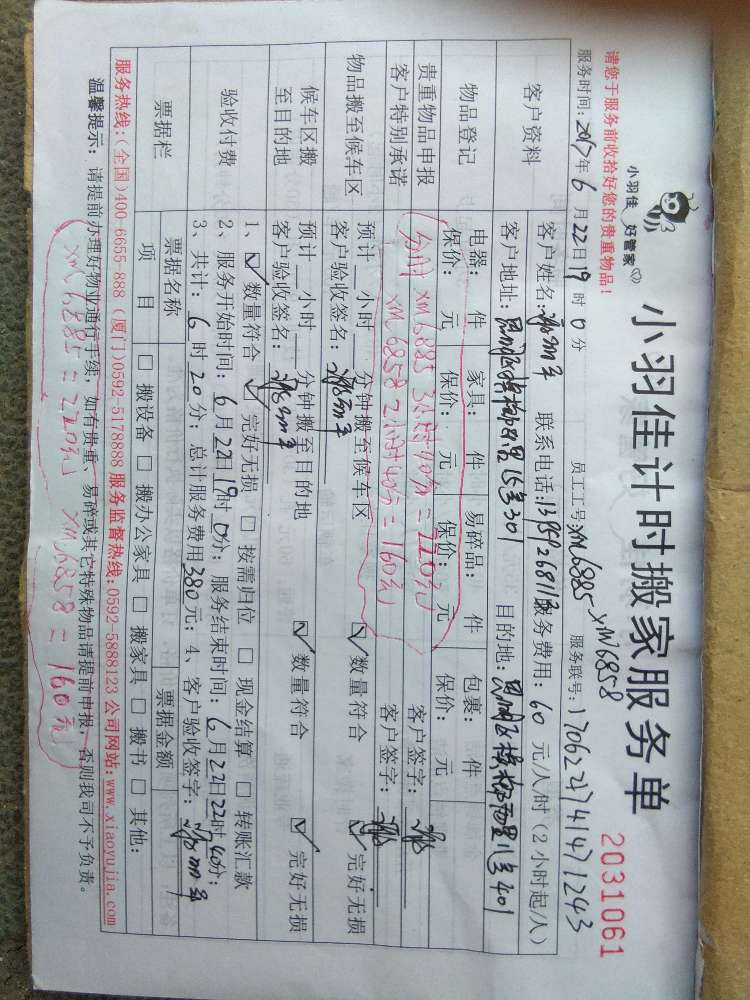 小羽佳 好管家
小羽佳计时搬家服务单
2031061
请您于服务前收拾好您的贵重物品！
员工工号:XM6885 XM6858
服务联号:170622474147 1243
服务时间: 2017年6月22日19时0分
客户资料
客户姓名:
联系电话:
服务费用: 60 元/人/时 (2小时起/人)
客户地址:
目的地:
物品登记
电器: 件 家具: 件 易碎品: 件 包裹: 件
保价: 元 保价: 元 保价: 元 保价: 元
贵重物品申报
客户签字:
客户特别承诺
客户签字:
分时 XM6885 3小时40分=220元
XM6858 2小时40分=160元
物品搬至候车区
预计 小时 分钟搬至候车区 ☑数量符合 ☑完好无损
客户验收签名:
候车区搬至目的地
预计 小时 分钟搬至目的地 ☑数量符合 ☑完好无损
客户验收签名:
验收付费
1、☑数量符合 ☑完好无损 □按需归位 □现金结算 □转账汇款
2、服务开始时间: 6月22日19时0分; 服务结束时间: 6月22日22时40分;
3、共计: 6时20分; 总计服务费用380元; 4、客户验收签字:
票据栏
票据名称 票据金额
项目 □搬设备 □搬办公家具 □搬家具 □搬书 □其他:
服务热线:(全国)400-6655-888 (厦门)0592-5178888 服务监督热线:0592-5888123 公司网站:www.xiaoyujia.com
温馨提示: 请提前办理好物业通行手续, 如有贵重、易碎或其它特殊物品请提前申报, 否则我司不予负责。
XM6885=220元 XM6858=160元